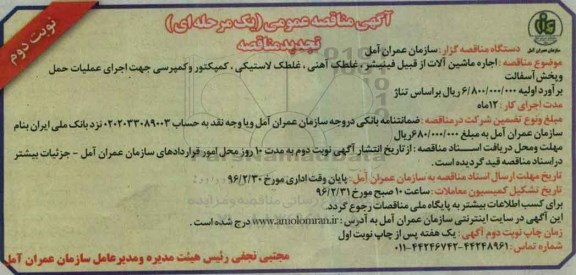 آگهی مناقصه عمومی (یک مرحله ای)
تجدید مناقصه
نوبت دوم
سازمان عمران آمل
دستگاه مناقصه گزار: سازمان عمران آمل
موضوع مناقصه: اجاره ماشین آلات از قبیل فینیشر، غلطک آهنی، غلطک لاستیکی، کمپکتور وکمپرسی جهت اجرای عملیات حمل
وپخش آسفالت
برآورد اولیه ۶/۸۰۰/۰۰۰/۰۰۰ ریال براساس تناژ
مدت اجرای کار: ۱۲ماه
مبلغ ونوع تضمین شرکت در مناقصه: ضمانتنامه بانکی دروجه سازمان عمران آمل ویا وجه نقد به حساب ۰۲۰۲۰۳۳۰۸۹۰۰۳ نزد بانک ملی ایران بنام
سازمان عمران آمل به مبلغ ۶۸۰/۰۰۰/۰۰۰ریال
مهلت ومحل دریافت اسناد مناقصه: از تاریخ انتشار آگهی نوبت دوم به مدت ۱۰ روز محل امور قراردادهای سازمان عمران آمل - جزئیات بیشتر
دراسناد مناقصه قید گردیده است.
تاریخ مهلت ارسال اسناد مناقصه به سازمان عمران آمل: پایان وقت اداری مورخ ۹۶/۲/۳۰
تاریخ تشکیل کمیسیون معاملات: ساعت ۱۰ صبح مورخ ۹۶/۲/۳۱
برای کسب اطلاعات بیشتر به پایگاه ملی مناقصات رجوع گردد.
این آگهی در سایت اینترنتی سازمان عمران آمل به آدرس: www.amolomran.ir درج شده است.
زمان چاپ نوبت دوم آگهی: یک هفته پس از چاپ نوبت اول
شماره تماس: ۴۴۲۴۸۹۶۱-۴۴۲۴۶۷۴۲-۰۱۱
مجتبی نجفی رئیس هیئت مدیره ومدیرعامل سازمان عمران آمل